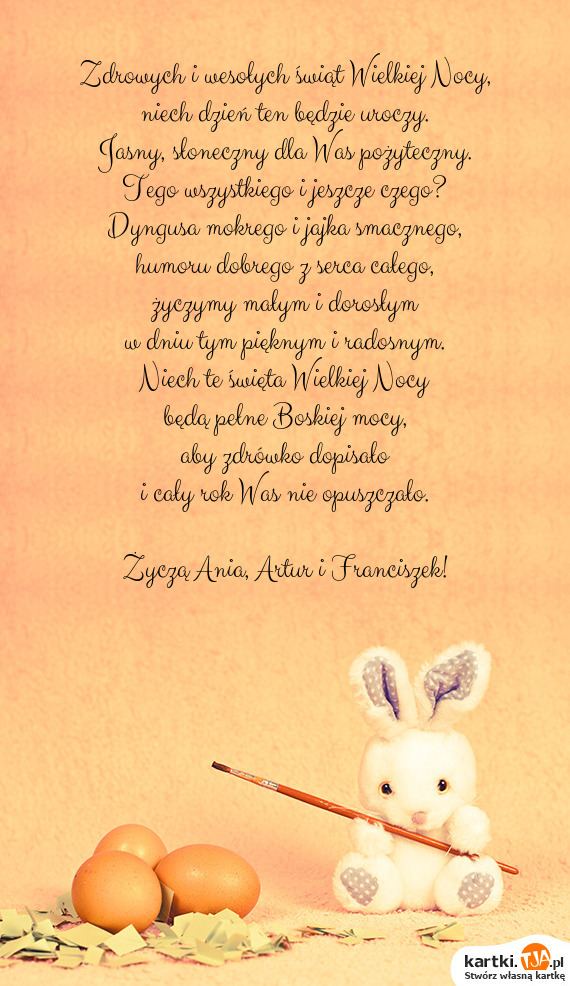 Zdrowych i wesołych świąt Wielkiej Nocy,
niech dzień ten będzie uroczy.
Jasny, słoneczny dla Was pożyteczny.
Tego wszystkiego i jeszcze czego?
Dyngusa mokrego i jajka smacznego,
humoru dobrego z serca całego,
życzymy małym i dorosłym
w dniu tym pięknym i radosnym.
Niech te święta Wielkiej Nocy
będą pełne Boskiej mocy,
aby zdrówko dopisało
i cały rok Was nie opuszczało.
Życzą Ania, Artur i Franciszek!
kartki.TJA.pl
Stwórz własną kartkę